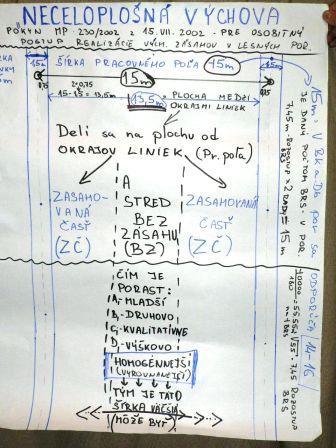 NECELOPLOŠNÁ VÝCHOVA
POKYN MP-230/2002 z 15.VII.2002 - PRE OSOBITNÝ
POSTUP REALIZÁCIE VÝCH. ZÁSAHOV V LESNÝCH POR.
ŠÍRKA PRACOVNÉHO POĽA 15m
15m
0,75
0,75
2×0,75
15-1,5 = 13,5m
13,5m = PLOCHA MEDZI
OKRAJMI LINIEK
Delí sa na plochu od
OKRAJOV LINIEK (Pr. poľa)
ZASAHO-
VANÁ
ČASŤ
(ZČ)
A
STRED
BEZ
ZÁSAHU
(BZ)
ZASAHOVANÁ
ČASŤ
(ZČ)
ČÍM JE
PORAST:
A, MLADŠÍ
B, DRUHOVO
C, KVALITATÍVNE
D, VÝŠKOVO
HOMOGÉNNEJŠÍ
(VYROVNANEJŠÍ)
TÝM JE TÁTO
ŠÍRKA VÄČŠIA
(MÔŽE BYŤ)
15m - V Bk a Db por. sa
JE DANÝ POČTOM BRS - V POR.
7,45m - ROZOSTUP × 2 RADY = 15m
BRS
ODPORÚČA 14-16
10000 = 55,55
180
√55 = 7,45 ROZOSTUP
n - BRS
BRS